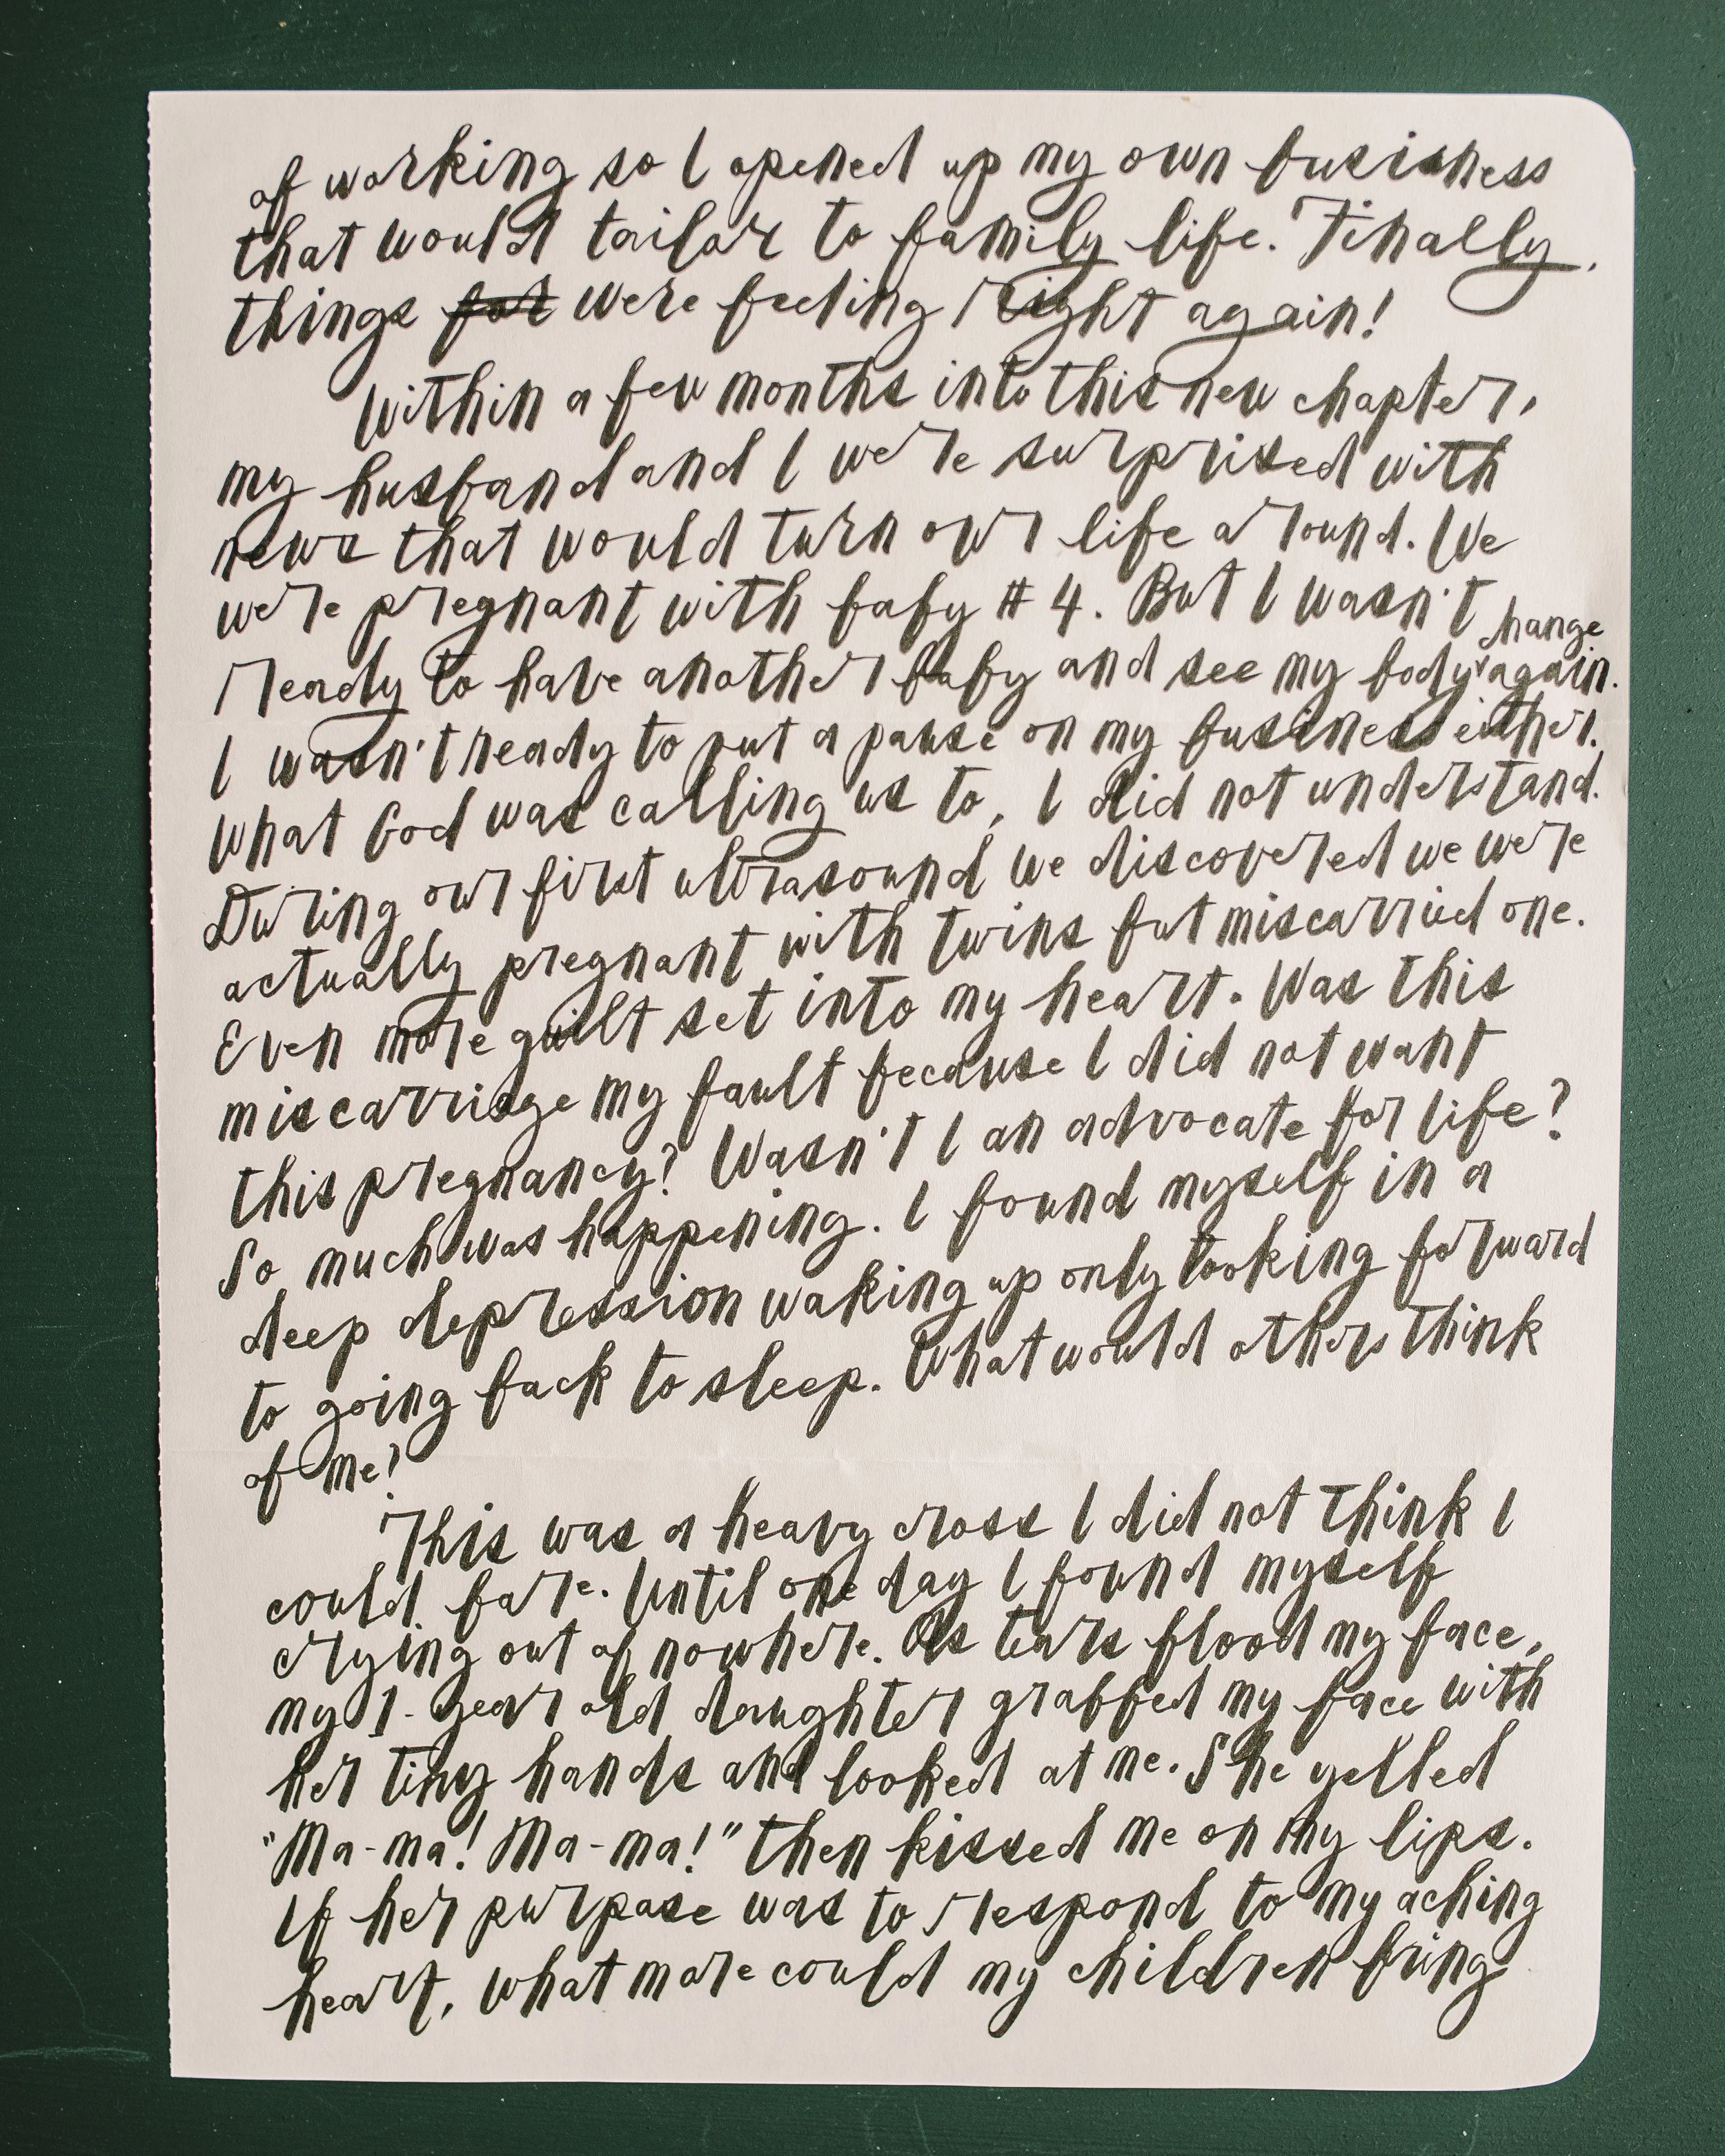 of working so I opened up my own business
that would tailor to family life. Finally,
things for were feeling right again!
Within a few months into this new chapter,
my husband and I were surprised with
news that would turn our life around. We
were pregnant with baby #4. But I wasn't
change
ready to have another baby and see my body again.
I wasn't ready to put a pause on my business either.
What God was calling us to, I did not understand.
During our first ultrasound we discovered we were
actually pregnant with twins but miscarried one.
Even more guilt set into my heart. Was this
miscarriage my fault because I did not want
this pregnancy? Wasn't I an advocate for life?
So much was happening. I found myself in a
deep depression waking up only looking forward
to going back to sleep. What would others think
of me?
This was a heavy cross I did not think I
could bare. Until one day I found myself
crying out of nowhere. As tears flood my face,
my 1-year old daughter grabbed my face with
her tiny hands and looked at me. She yelled
"Ma-ma! Ma-ma!" then kissed me on my lips.
If her purpose was to respond to my aching
heart, what more could my children bring